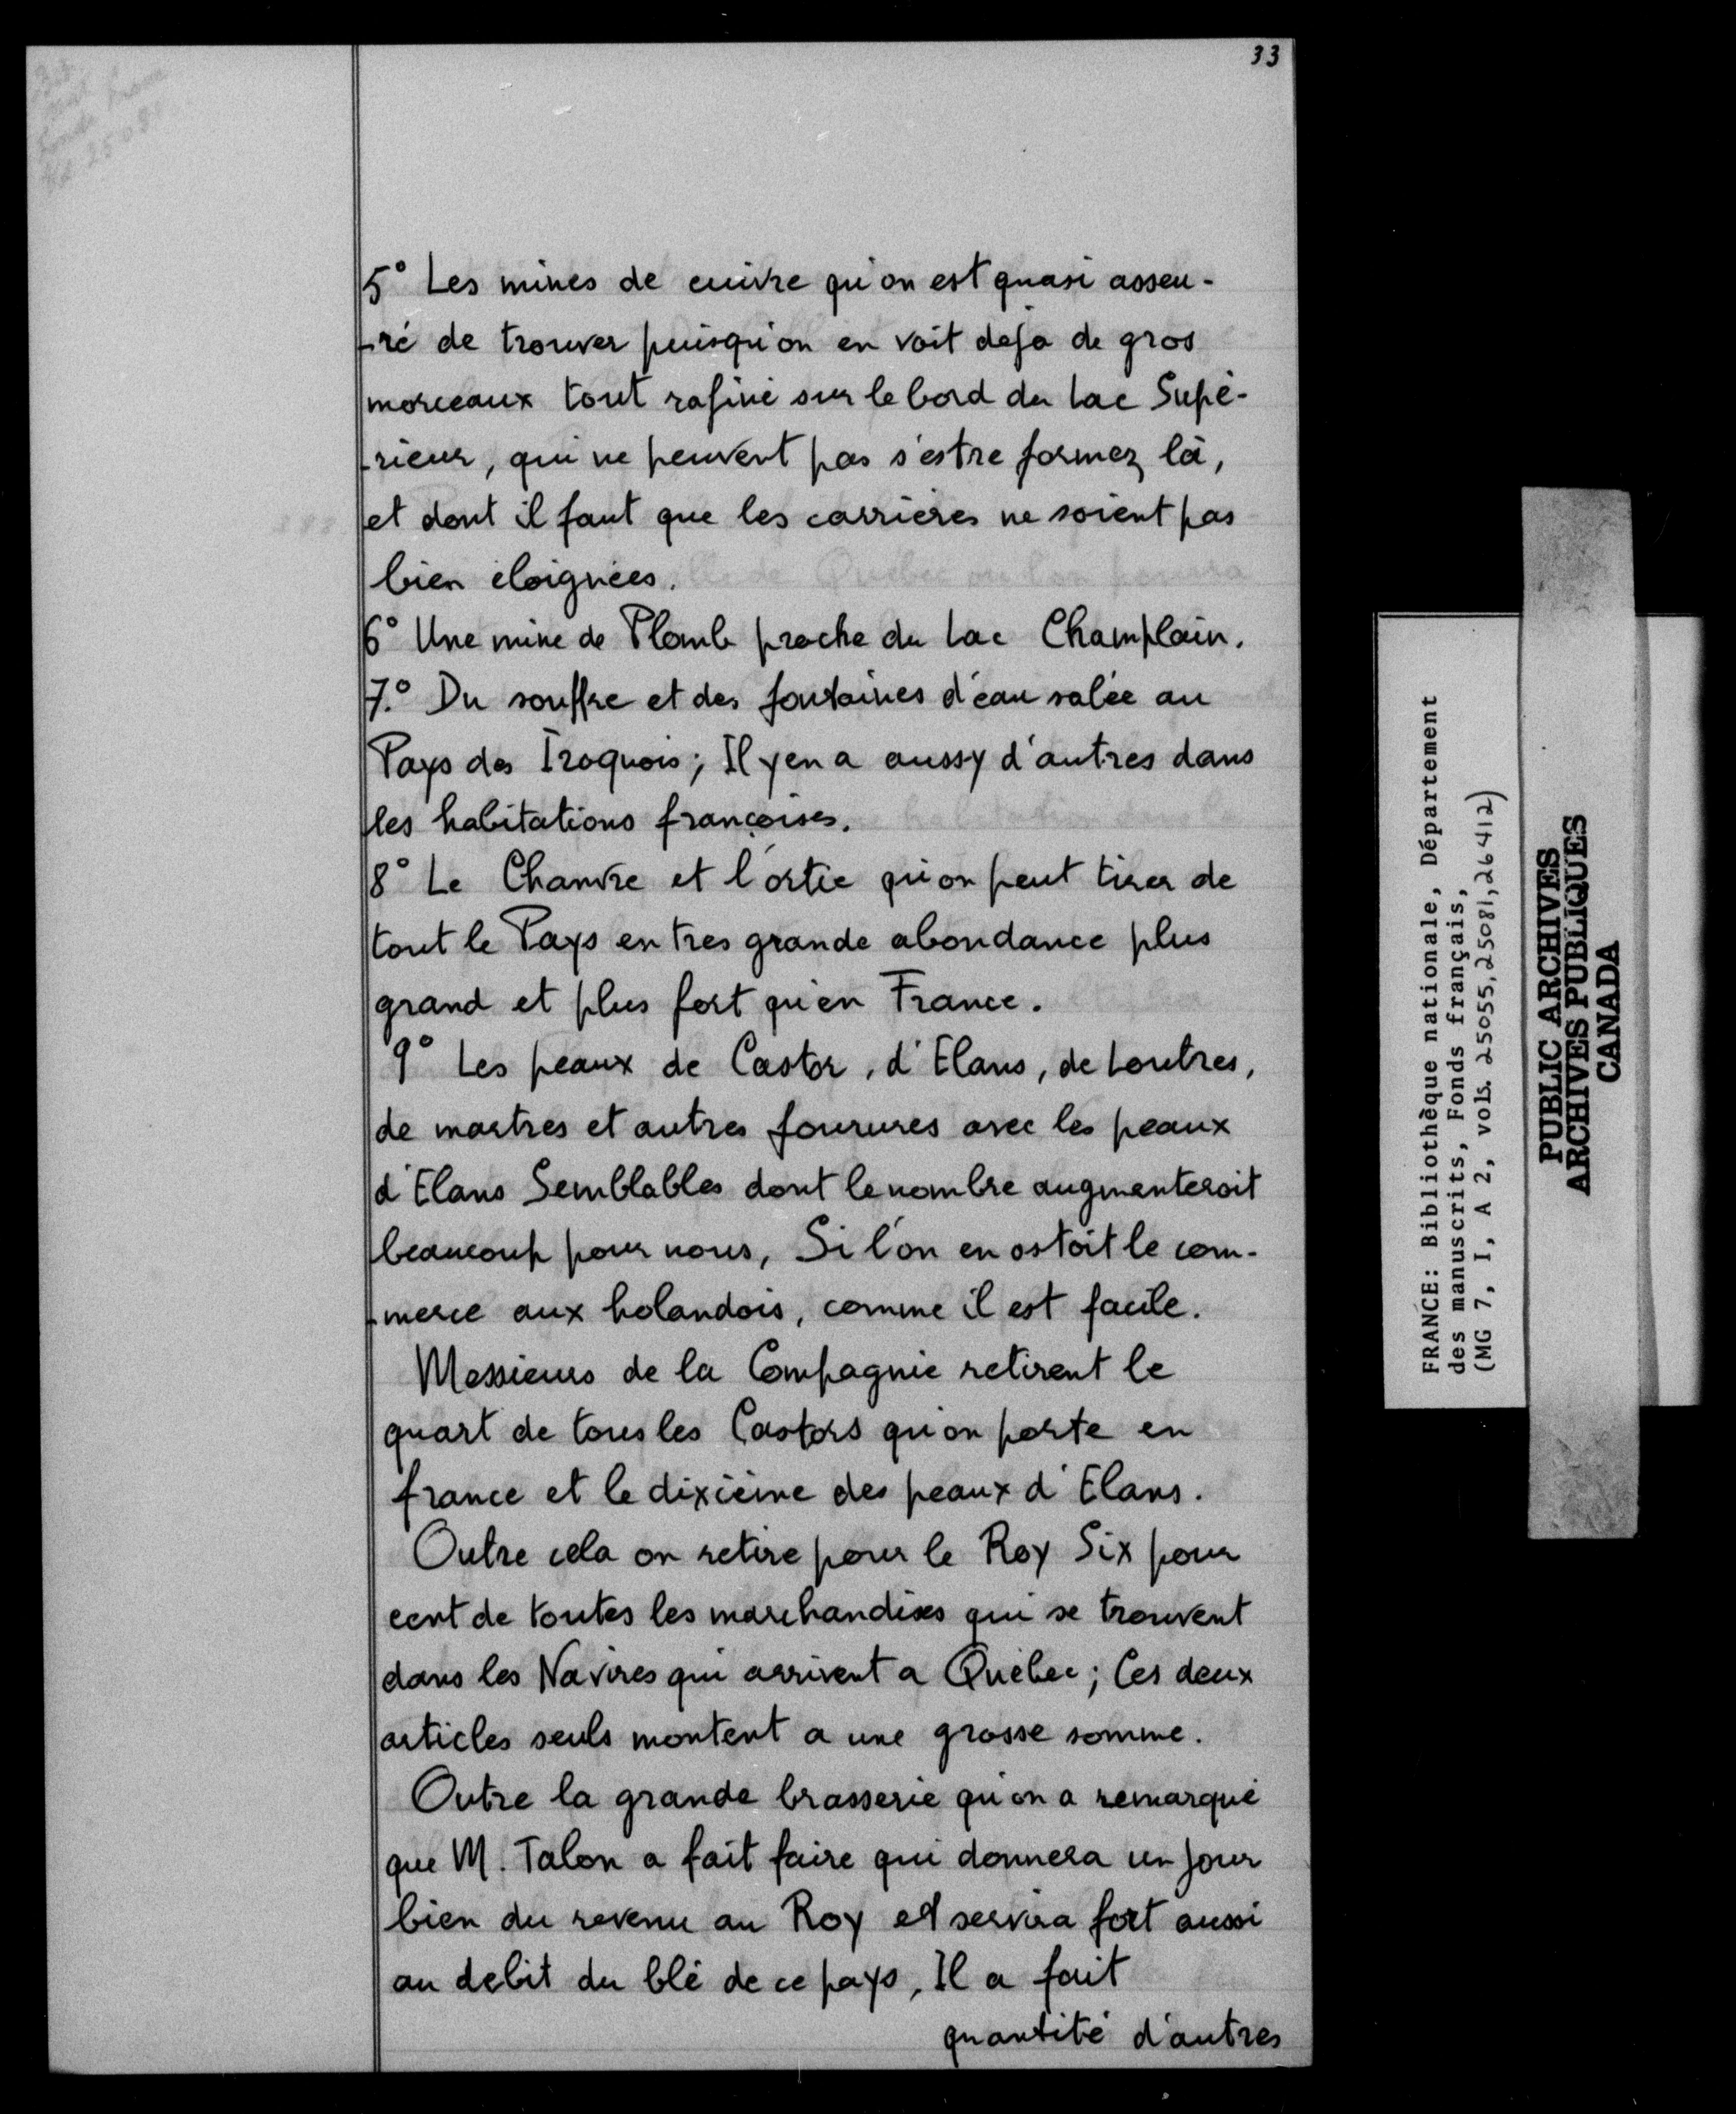 33
5° Les mines de cuivre qu'on est quasi asseu-
-ré de trouver puisqu'on en voit deja de gros
morceaux tout rafiné sur le bord du Lac Supé-
-rieur, qui ne peuvent pas s'estre formez là,
et dont il faut que les carrières ne soient pas
bien éloignées.
6° Une mine de Plomb proche du Lac Champlain.
7.° Du souffre et des fontaines d'eau salée au
Pays des Iroquois; Il y en a aussy d'autres dans
les habitations françoises.
8° Le Chanvre et l'ortie qu'on peut tirer de
tout le Pays en tres grande abondance plus
grand et plus fort qu'en France.
9° Les peaux de Castor, d'Elans, de Loutres,
de martres et autres fourures avec les peaux
d'Elans Semblables dont le nombre augmenteroit
beaucoup pour nous, Si l'on en ostoit le com-
-merce aux holandois, comme il est facile.
Messieurs de la Compagnie retirent le
quart de tous les Castors qu'on porte en
france et le dixième des peaux d'Elans.
Outre cela on retire pour le Roy Six pour
cent de toutes les marchandises qui se trouvent
dans les Navires qui arrivent a Québec; Ces deux
articles seuls montent a une grosse somme.
Outre la grande brasserie qu'on a remarqué
que M. Talon a fait faire qui donnera un jour
bien du revenu au Roy et servira fort aussi
au debit du blé de ce pays, Il a fait
quantité d'autres
FRANCE: Bibliothèque nationale, Département
des manuscrits, Fonds français,
(MG 7, I, A 2, vols. 25055, 25081, 26412)
PUBLIC ARCHIVES
ARCHIVES PUBLIQUES
CANADA